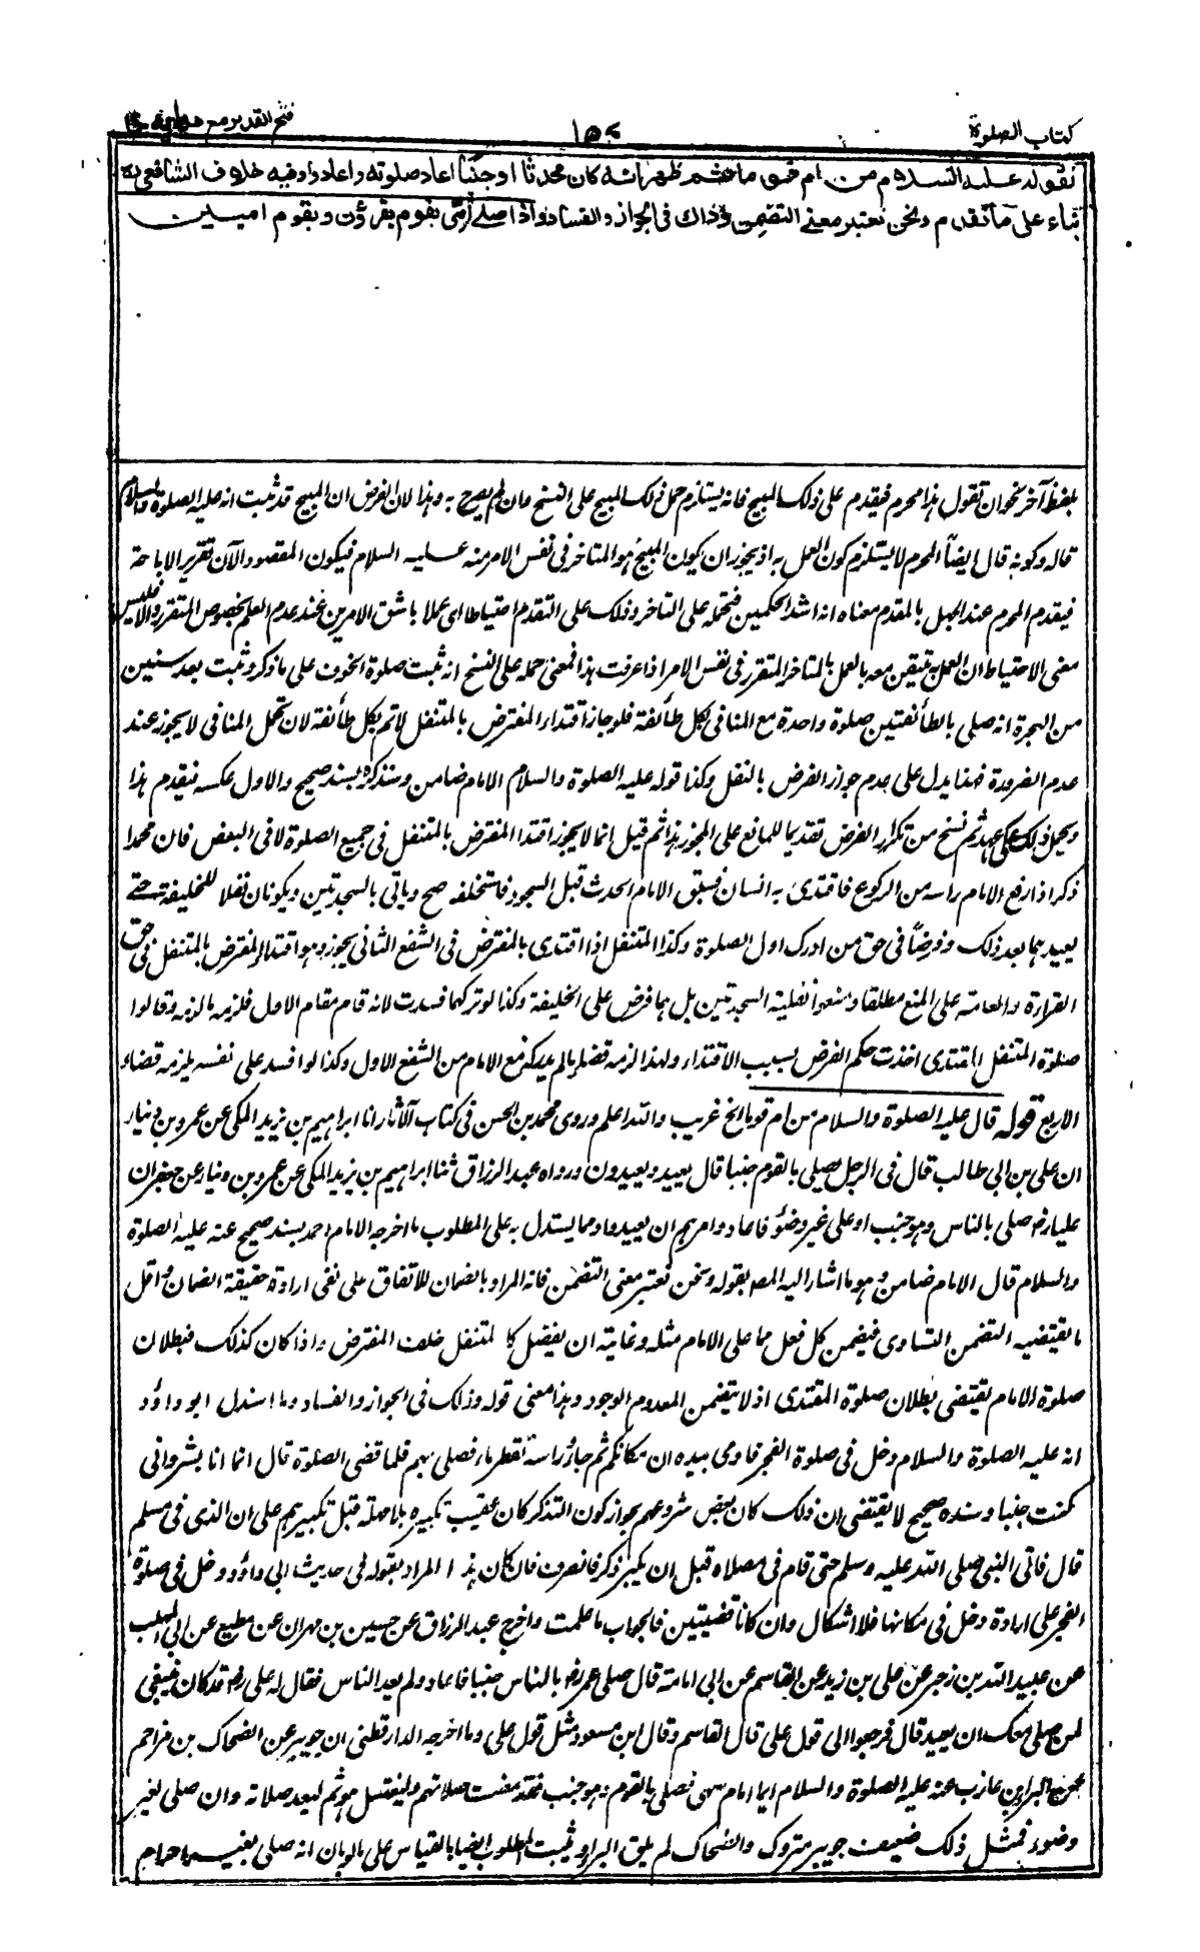 كتاب الصلوة
١٥٤
فتح القدير مع هداية
لقوله عليه السلام من ام قوما ثم ظهر انه كان محدثا او جنبا اعاد صلوته واعادوا وفيه خلاف الشافعي رح
بناء على ما تقدم ونحن نعتبر معنى التضمن وذلك في الجواز والفساد واذا صلى امي بقوم يقرؤن وبقوم اميين
بلفظ آخر نحو ان تقول هذا محرم فيقدم على ذلك المبيح فانه يستلزم حمل ذلك المبيح على النسخ وان لم يصح به وهذا لان الغرض ان المبيح قد ثبت انه عليه الصلوة والسلام
قاله وكونه قال ايضاً المحرم لا يستلزم كون العمل به اذ يجوز ان يكون المبيح هو المتاخر في نفس الامر منه عليه السلام فيكون المقصود الآن تقرير الاباحة
فيقدم المحرم عند الجهل بالمقدم معناه انه اشد الحكمين فتحمله على التاخر وذلك على التقدم احتياطا اى عملا باشق الامرين فعند عدم العلم بخصوص المتقرر والا فليس
معنى الاحتياط ان العمل به يتيقن معه بالعمل بالمتاخر المتقرر في نفس الامر اذا عرفت هذا فمعنى حمله على النسخ انه ثبت صلوة الخوف على ما ذكر وثبت بعد سنين
من الهجرة انه صلى بالطائفتين صلوة واحدة مع المنافي بكل طائفة فلو جاز اقتداء المفترض بالمتنفل لاتم بكل طائفة لان تحمل المنافي لا يجوز عند
عدم الضرورة فهنا يدل على عدم جواز الفرض بالنفل وكذا قوله عليه الصلوة والسلام الامام ضامن وسنذكره بسند صحيح والاول عكسه فيقدم هذا
ويحمل ذلك على عهد ثم نسخ من تكرار الفرض تقديما للمانع على المجوز هذا ثم قيل انما لا يجوز اقتداء المفترض بالمتنفل في جميع الصلوة لا في البعض فان محمدا
ذكر اذا رفع الامام راسه من الركوع فاقتدى به انسان فسبق الامام الحدث قبل السجود فاستخلفه صح وياتي بالسجدتين ويكونان نفلا للخليفة حتى
يعيدهما بعد ذلك وفرضاً في حق من ادرك اول الصلوة وكذا المتنفل اذا اقتدى بالمفترض في الشفع الثاني يجوز وهو اقتداء المفترض بالمتنفل في حق
القراءة والعامة على المنع مطلقا ومنعوا نفلية السجدتين بل هما فرض على الخليفة وكذا لو تركهما فسدت لانه قام مقام الاول فلزمه ما لزمه وقالوا
صلوة المتنفل المقتدى اخذت حكم الفرض بسبب الاقتداء ولهذا لزمه قضاء ما لم يدركه مع الامام من الشفع الاول وكذا لو افسد على نفسه يلزمه قضاء
الاربع قوله قال عليه الصلوة والسلام من ام قوما الخ غريب والله اعلم وروى محمد بن الحسن في كتاب الآثار انا ابراهيم بن يزيد المكي عن عمرو بن دينار
ان على بن ابى طالب قال فى الرجل يصلى بالقوم جنبا قال يعيد ويعيدون ورواه عبد الرزاق ثنا ابراهيم بن يزيد المكي عن عمرو بن دينار عن جعفر ان
عليا رض صلى بالناس وهو جنب او على غير وضوء فاعاد وامرهم ان يعيدوا ومما يستدل به على المطلوب ما اخرجه الامام احمد بسند صحيح عنه عليه الصلوة
والسلام قال الامام ضامن وهو ما اشار اليه المص بقوله ونحن نعتبر معنى التضمن فانه المراد بالضمان للاتفاق على نفى ارادة حقيقة الضمان واقل
ما يقتضيه التضمن التساوى فيضمن كل فعل مما على الامام مثله وغايته ان يفضل كالمتنفل خلف المفترض واذا كان كذلك فبطلان
صلوة الامام يقتضى بطلان صلوة المقتدى اذ لا يتضمن المعدوم الموجود وهذا معنى قوله وذلك في الجواز والفساد وما اسند ابو داؤد
انه عليه الصلوة والسلام دخل فى صلوة الفجر فاومى بيده ان مكانكم ثم جاء وراسه تقطر ماء فصلى بهم فلما قضى الصلوة قال انما انا بشر وانى
كنت جنبا وسنده صحيح لا يقتضى ان ذلك كان بعض شروعهم بجواز كون التذكر كان عقيب تكبيره بلا مهلة قبل تكبيرهم على ان الذى فى مسلم
قال فاتى النبى صلى الله عليه وسلم حتى قام فى مصلاه قبل ان يكبر ذكر فانصرف فان كان هذا المراد بقوله فى حديث ابى داؤد دخل فى صلوة
الفجر على ارادة دخل فى مكانها فلا اشكال وان كانا قضيتين فالجواب ما علمت واخرج عبد الرزاق عن حسين بن مهران عن مطيع عن ابى المهلب
عن عبيد الله بن زحر عن على بن زيد عن القاسم عن ابى امامة قال صلى عمر رض بالناس جنبا فاعاد ولم يعد الناس فقال له على رض قد كان ينبغى
لمن صلى معك ان يعيد قال فرجعوا الى قول على قال القاسم وقال ابن مسعود مثل قول على وما اخرجه الدارقطنى ان جويبر عن الضحاك بن مزاحم
عن البراء بن عازب عنه عليه الصلوة والسلام ايما امام سهى فصلى بالقوم وهو جنب فقد مضت صلاتهم وليغتسل هو ثم ليعد صلاته وان صلى بغير
وضوء فمثل ذلك ضعيف جويبر متروك والضحاك لم يلق البراء وثبت المطلوب ايضا بالقياس على ما لو بان انه صلى بغير احرام